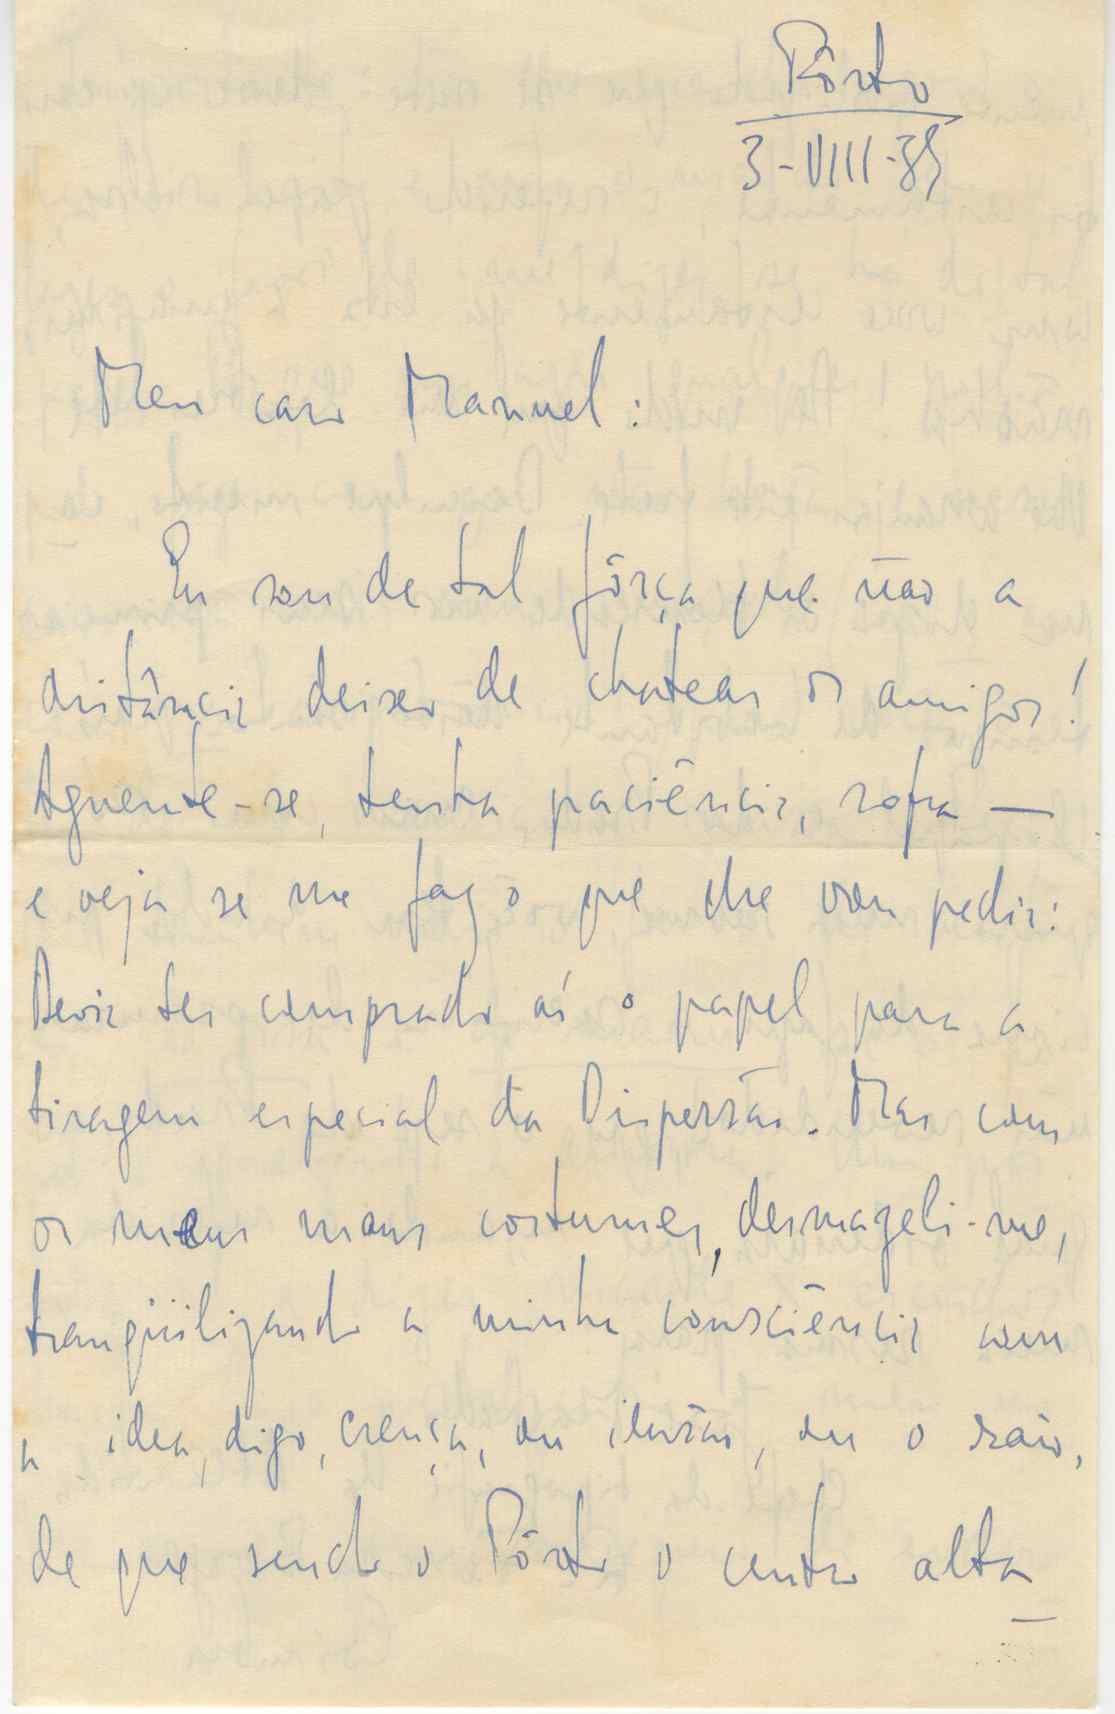 Pôrto
3-VIII-39
Meu caro Manuel:
Eu sou de tal fôrça que nao a
distância deixo de chatear os amigos!
Aguente-se, tenha paciência, sofra —
e veja se me faz o que lhe vou pedir:
Devia ter comprado aí o papel para a
tiragem especial da Dispersão. Mas com
os meus maus costumes, desmazeli-me,
tranqüilizando a minha consciência com
a idea, digo, crença, ou ilusão, ou o raio,
de que sendo o Pôrto o centro alta